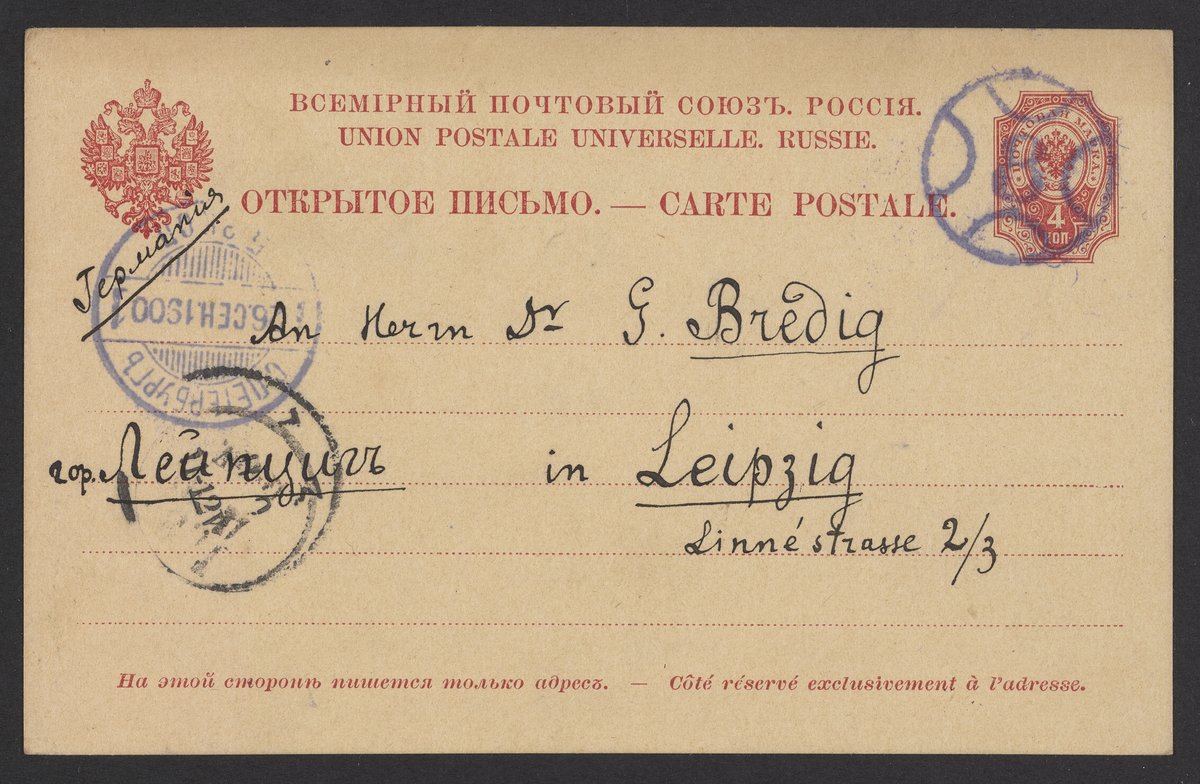 ВСЕМІРНЫЙ ПОЧТОВЫЙ СОЮЗЪ. РОССІЯ.
UNION POSTALE UNIVERSELLE. RUSSIE.
ОТКРЫТОЕ ПИСЬМО. — CARTE POSTALE.
ПОЧТОВАЯ МАРКА
4
КОП.
Германия
6.СЕН.1900
С.ПЕТЕРБУРГЪ
An Herrn Dr G. Bredig
гор. Лейпцигъ in Leipzig
Linnéstrasse 2/3
На этой сторонѣ пишется только адресъ. — Côté réservé exclusivement à l'adresse.